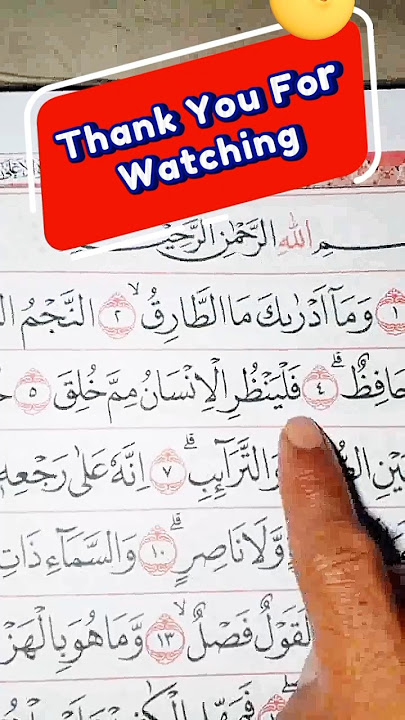 Thank You For
Watching
اللهِ الرَّحْمٰنِ الرَّحِيْمِ
١ وَمَآ اَدْرٰىكَ مَا الطَّارِقُۙ ٢ النَّجْمُ
حَافِظٌۗ ٤ فَلْيَنْظُرِ الْاِنْسَانُ مِمَّ خُلِقَ ٥
وَالتَّرَاۤىِٕبِۗ ٧ اِنَّهٗ عَلٰى رَجْعِهٖ
وَّلَا نَاصِرٍۗ ١٠ وَالسَّمَاۤءِ ذَاتِ
لَقَوْلٌ فَصْلٌۙ ١٣ وَّمَا هُوَ بِالْهَزْ